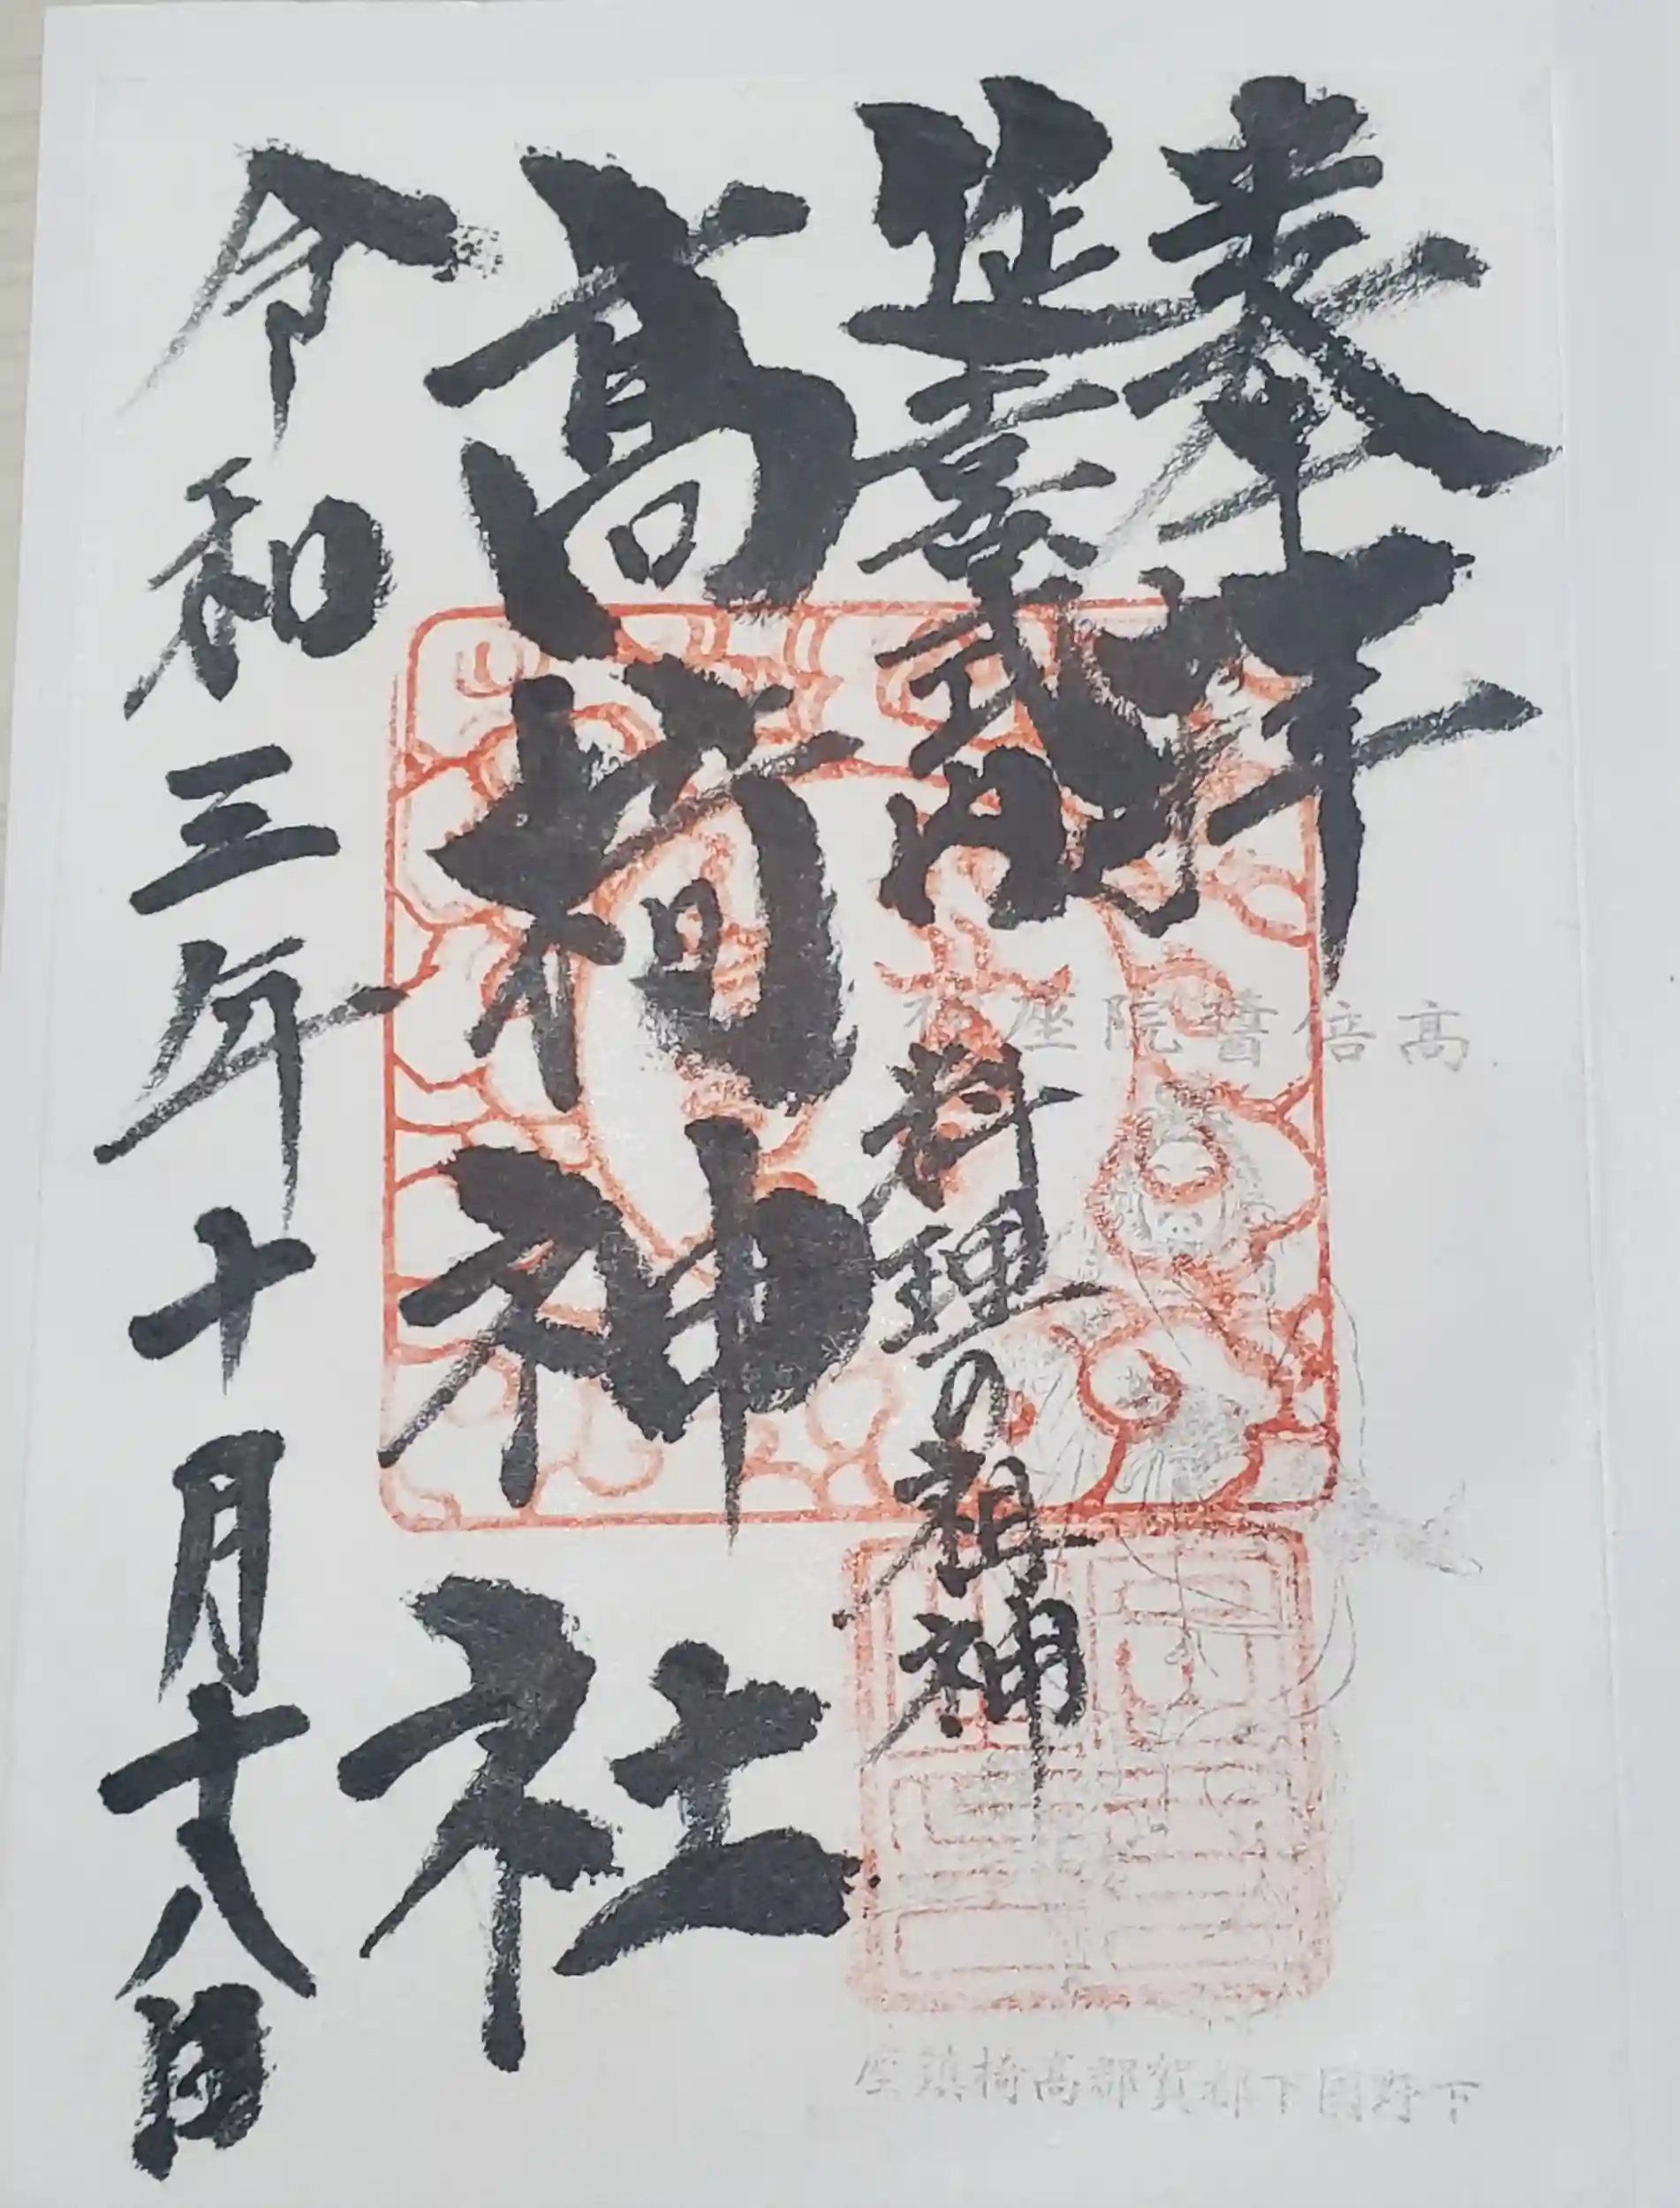 奉拝
延喜式内
料理の祖神
高椅神社
令和三年十月十八日
下野國下都賀郡高椅鎮座